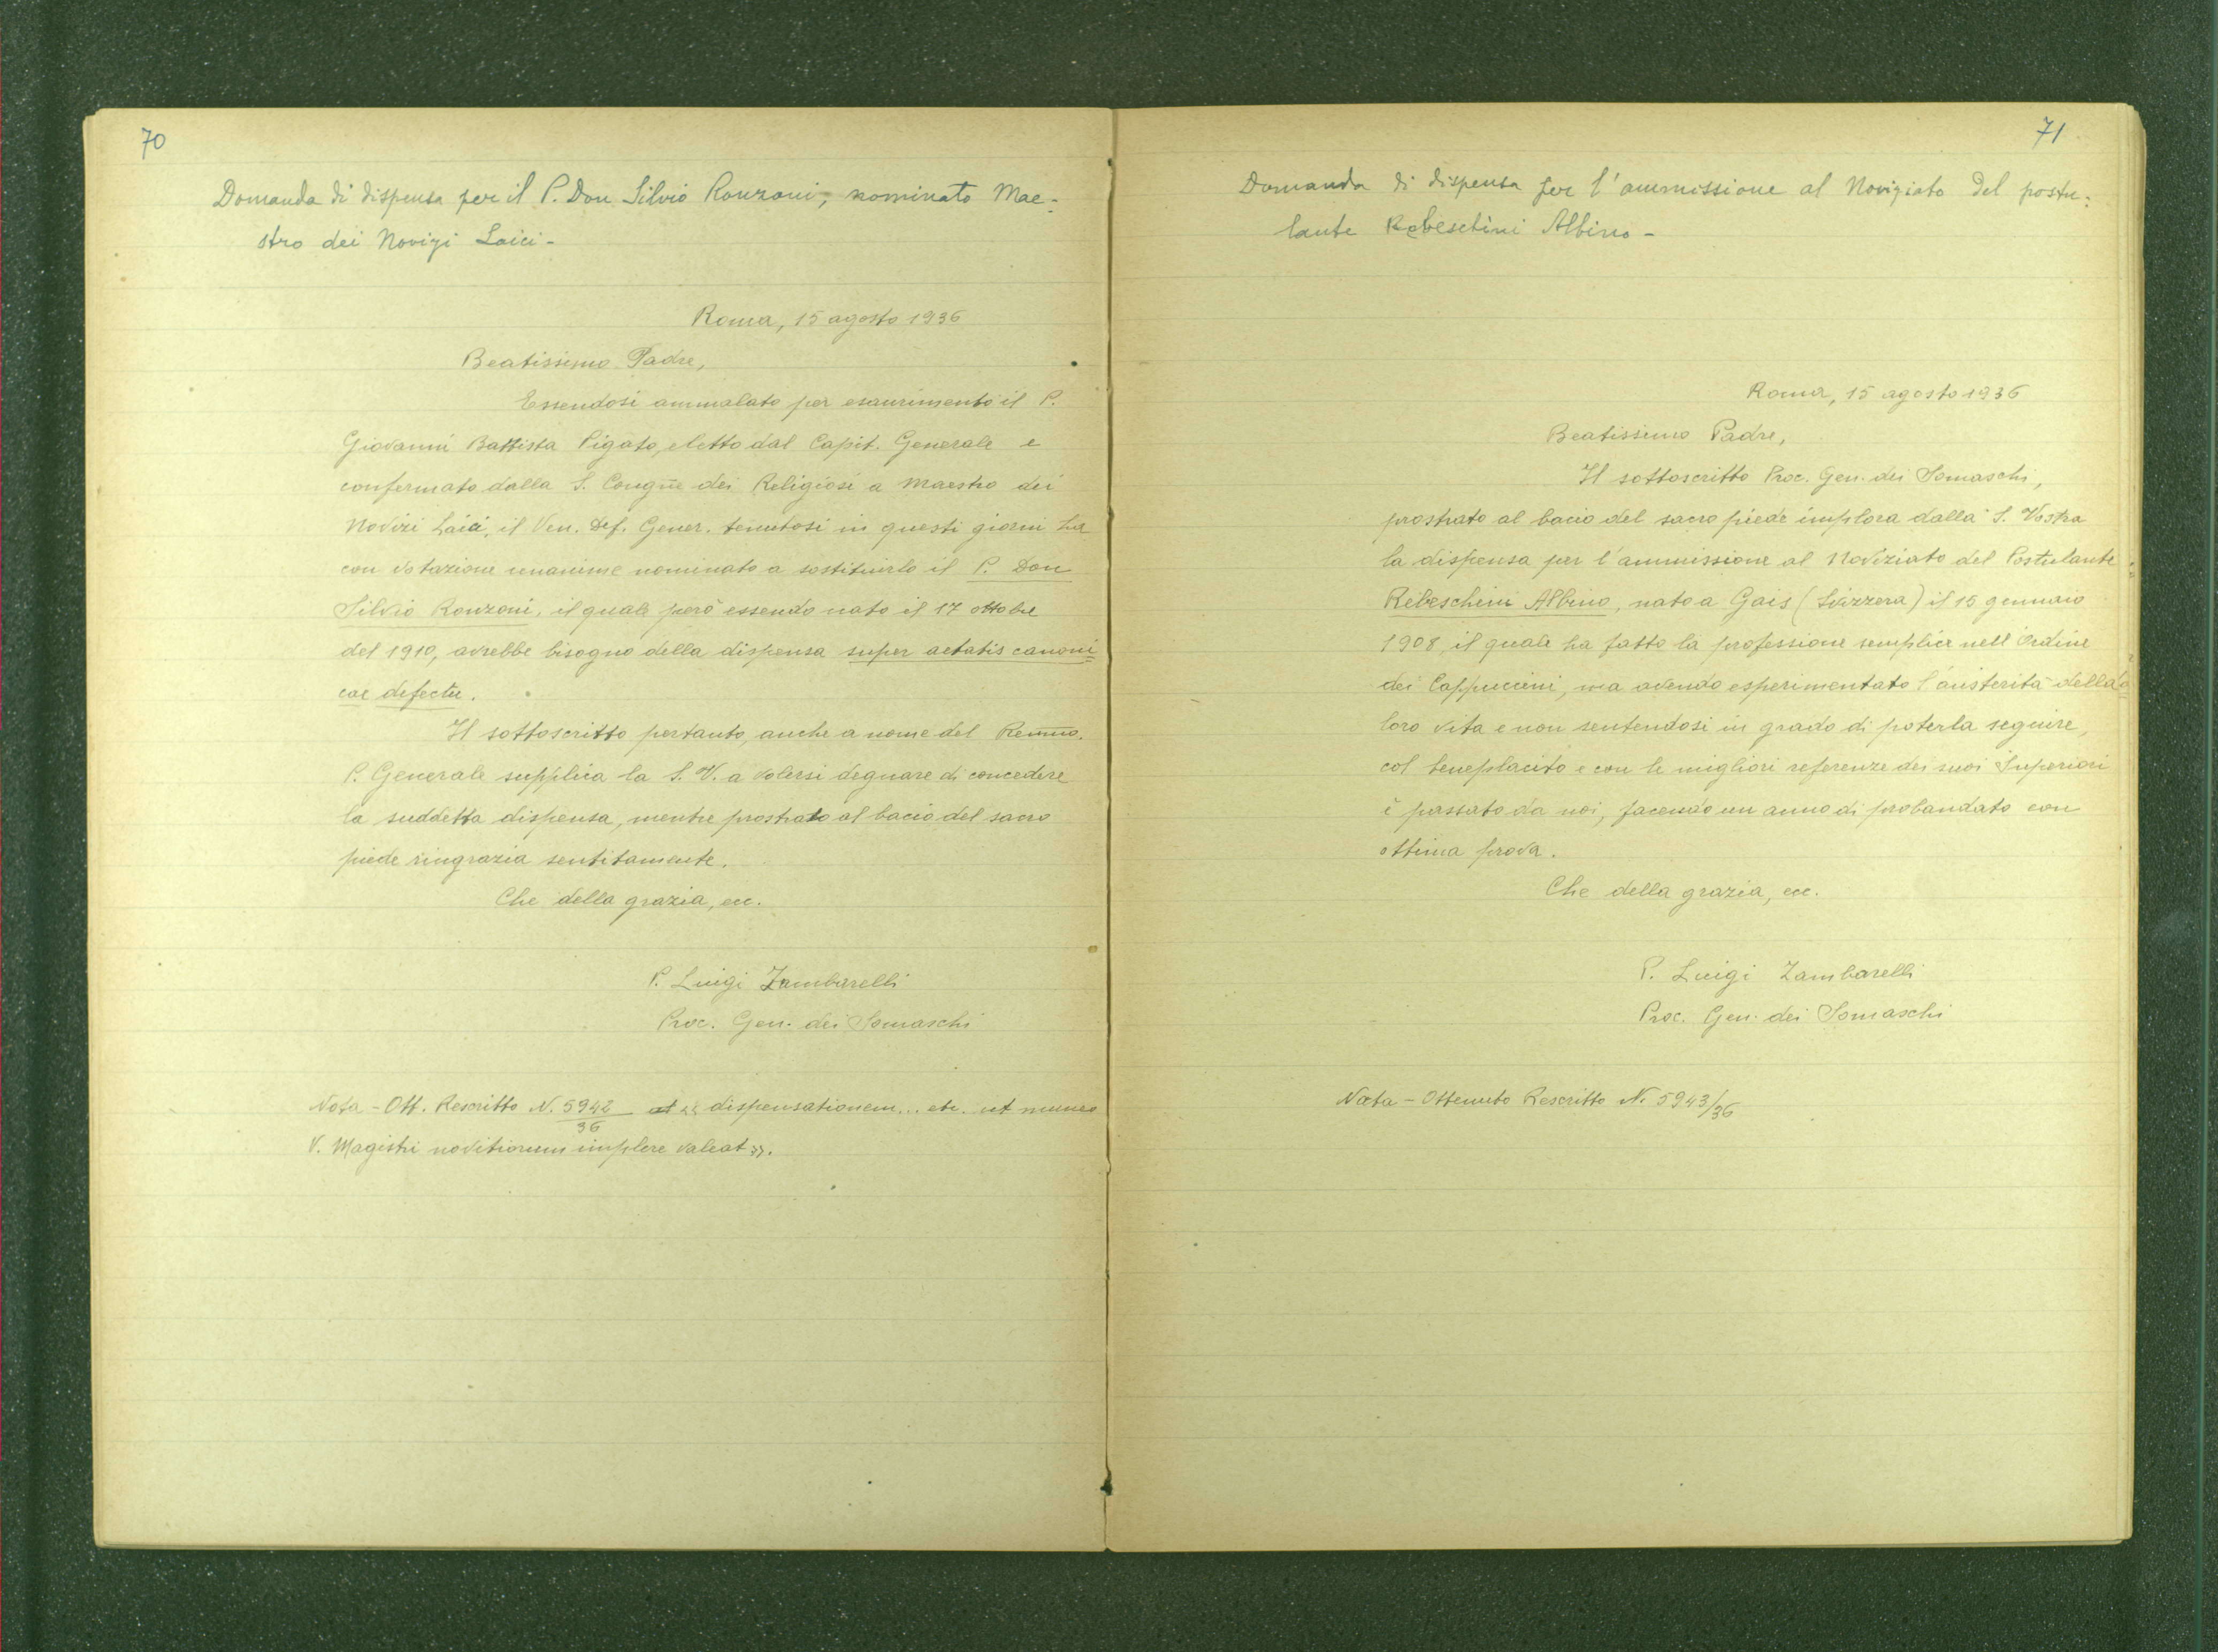 70
Domanda di dispensa per il P. Don Silvio Ronzoni, nominato Mae=
stro dei Novizi Laici -
Roma, 15 agosto 1936
Beatissimo Padre,
Essendosi ammalato per esaurimento il P.
Giovanni Battista Pigato, eletto dal Capit. Generale e
confermato dalla S. Congñe dei Religiosi a Maestro dei
Novizi Laici, il Ven. Def. Gener. tenutosi in questi giorni ha
con votazione unanime nominato a sostituirlo il P. Don
Silvio Ronzoni, il quale però essendo nato il 17 ottobre
del 1910, avrebbe bisogno della dispensa super aetatis canoni=
cae defectu.
Il sottoscritto pertanto, anche a nome del Remmo.
P. Generale supplica la S. V. a volersi degnare di concedere
la suddetta dispensa, mentre prostrato al bacio del sacro
piede ringrazia sentitamente.
Che della grazia, ecc.
P. Luigi Zambarelli
Proc. Gen. dei Somaschi
Nota - Ott. Rescritto N. 5942/36 « dispensationem... etc. ut munus
V. Magistri novitiorum implere valeat ».
71
Domanda di dispensa per l'ammissione al Noviziato del postu=
lante Rebeschini Albino -
Roma, 15 agosto 1936
Beatissimo Padre,
Il sottoscritto Proc. Gen. dei Somaschi,
prostrato al bacio del sacro piede implora dalla S. Vostra
la dispensa per l'ammissione al Noviziato del Postulante
Rebeschini Albino, nato a Gais (Svizzera) il 15 gennaio
1908, il quale ha fatto la professione semplice nell'Ordine
dei Cappuccini, ma avendo esperimentato l'austerità della
loro vita e non sentendosi in grado di poterla seguire,
col beneplacito e con le migliori referenze dei suoi Superiori
è passato da noi, facendo un anno di probandato con
ottima prova.
Che della grazia, ecc.
P. Luigi Zambarelli
Proc. Gen. dei Somaschi
Nota - Ottenuto Rescritto N. 5943/36